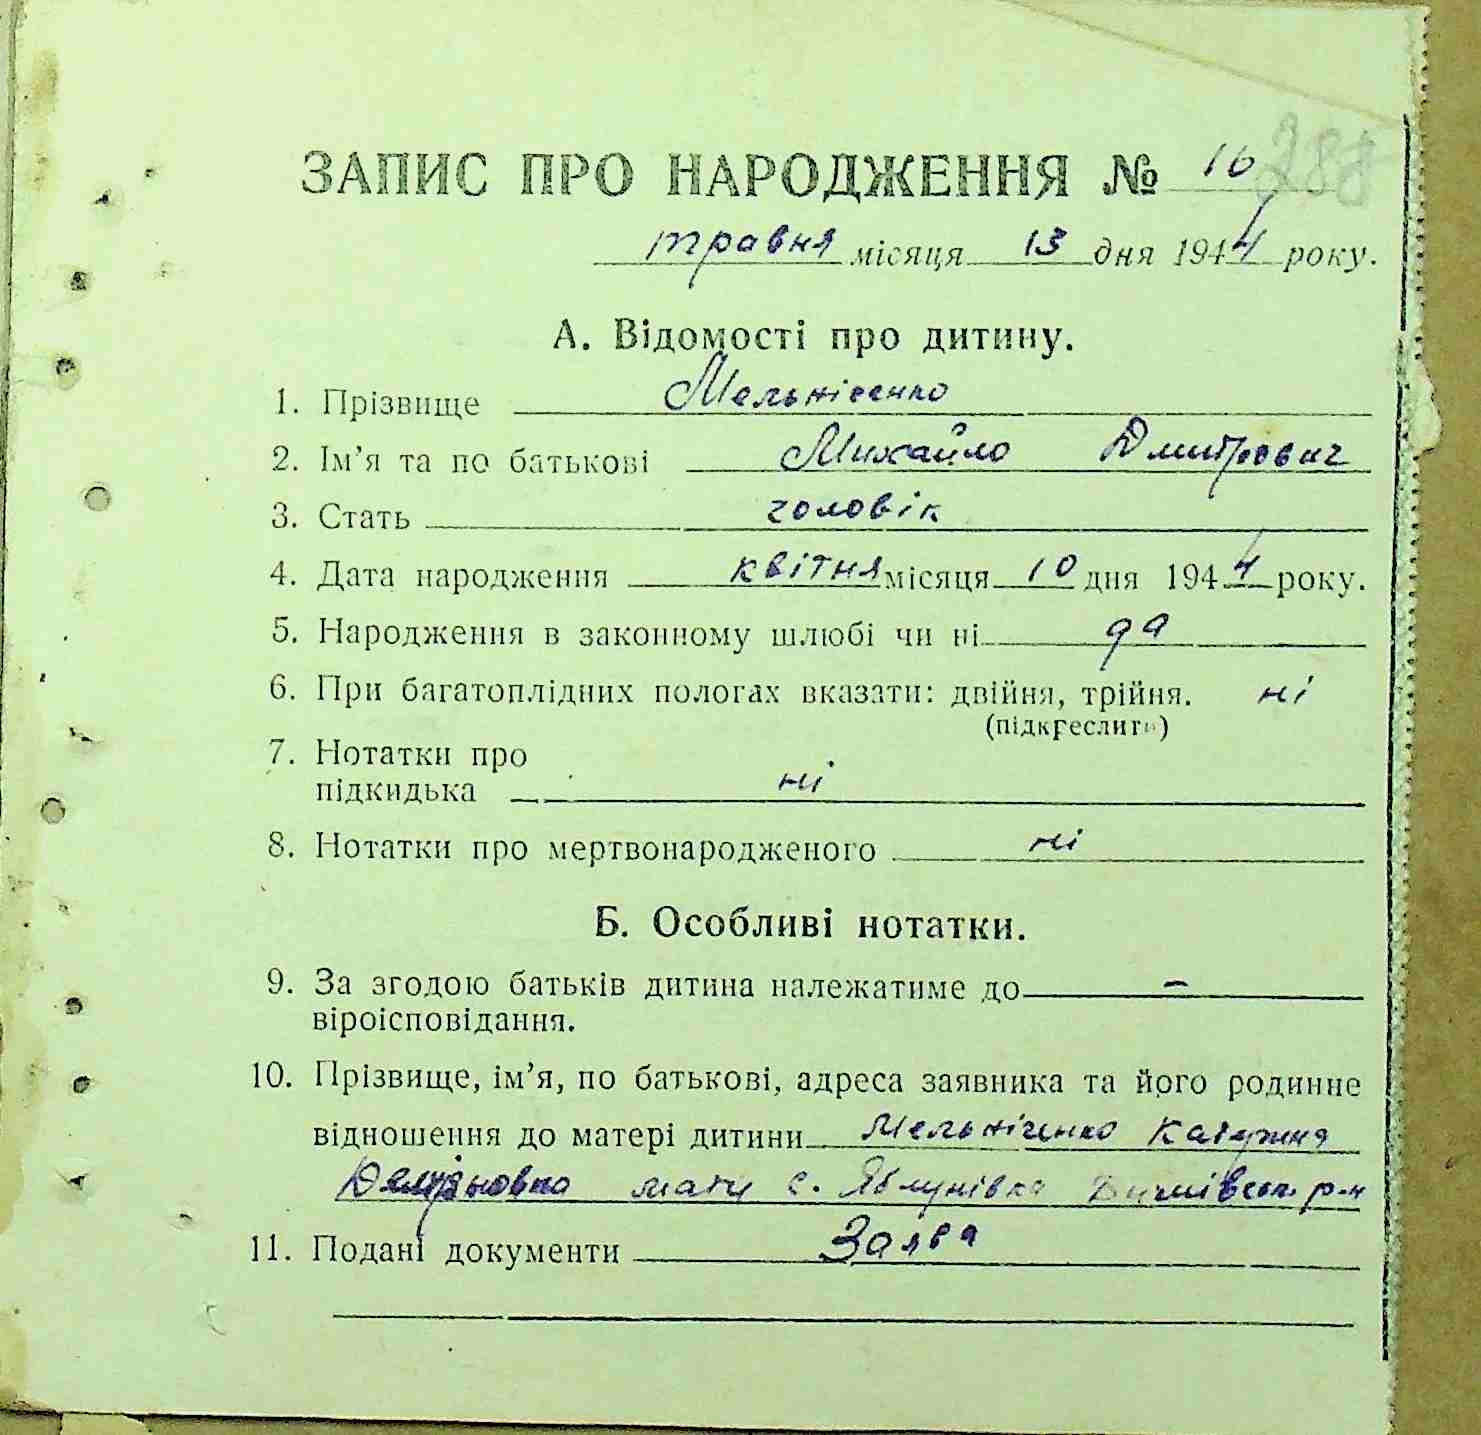 288
ЗАПИС ПРО НАРОДЖЕННЯ № 16
травня місяця 13 дня 1944 року.
А. Відомості про дитину.
1. Прізвище Мельніченко
2. Ім'я та по батькові Михайло Дмитрович
3. Стать чоловік
4. Дата народження квітня місяця 10 дня 1944 року.
5. Народження в законному шлюбі чи ні да
6. При багатоплідних пологах вказати: двійня, трійня. ні
(підкреслити)
7. Нотатки про
підкидька ні
8. Нотатки про мертвонародженого ні
Б. Особливі нотатки.
9. За згодою батьків дитина належатиме до –
віроісповідання.
10. Прізвище, ім'я, по батькові, адреса заявника та його родинне
відношення до матері дитини Мельніченко Катерина
мати с. Яблунівка р-н
11. Подані документи Заява